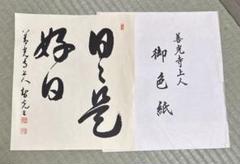 日々是
好日
善光寺上人
善光寺上人
御色紙